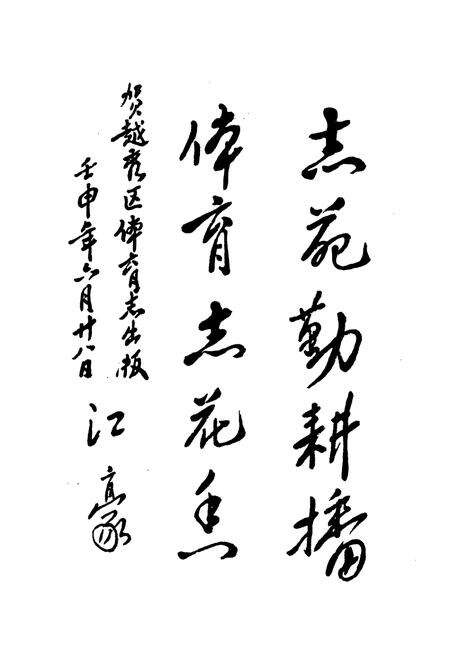 志苑勤耕播
体育志花香
贺越秀区体育志出版
壬申年六月廿八日
江豪